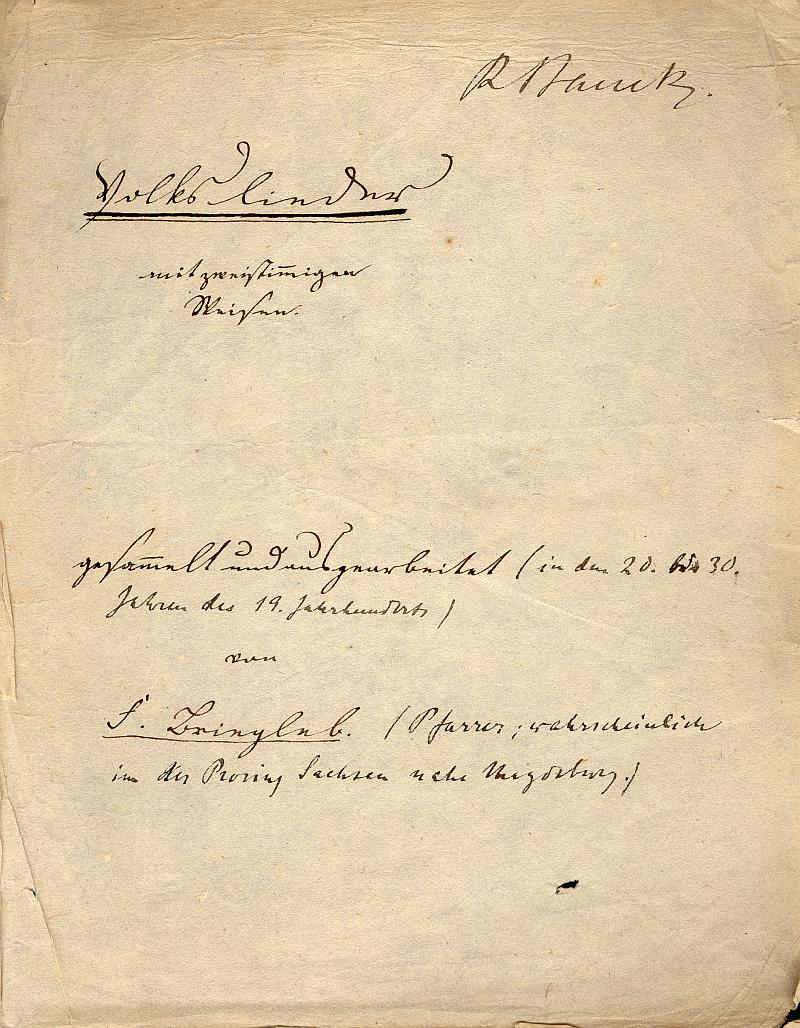 Volkslieder
mit zweistim̄igen
Weisen.
gesam̄elt und ausgearbeitet (in den 20. bis 30.
Jahren des 19. Jahrhunderts)
von
(Pfarrer; wahrscheinlich
in der Provinz Sachsen nahe Magdeburg.)